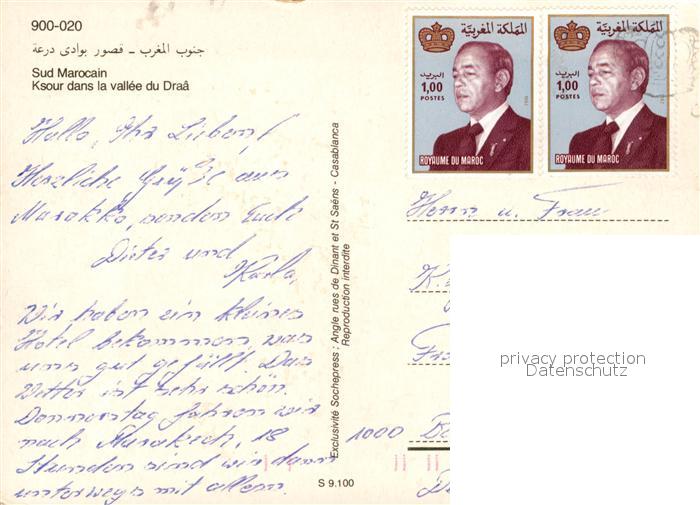 900-020
جنوب المغرب - قصور بوادى درعة
Sud Marocain
Ksour dans la vallée du Draâ
Hallo, Ihr Lieben!
Herzliche Grüße aus
Marokko, senden Euch
Dieter und
Karla,
Wir haben ein kleines
Hotel bekommen, was
uns gut gefällt. Das
Wetter ist sehr schön.
Donnerstag fahren wir
nach Marakech, 18
Stunden sind wir dann
unterwegs mit allem.
Exclusivité Sochepress : Angle rues de Dinant et St Saëns - Casablanca
Reproduction interdite
S 9.100
المملكة المغربية
البريد
1,00
POSTES
ROYAUME DU MAROC
المملكة المغربية
البريد
1,00
POSTES
ROYAUME DU MAROC
Herrn u. Frau
K.
1000
privacy protection
Datenschutz